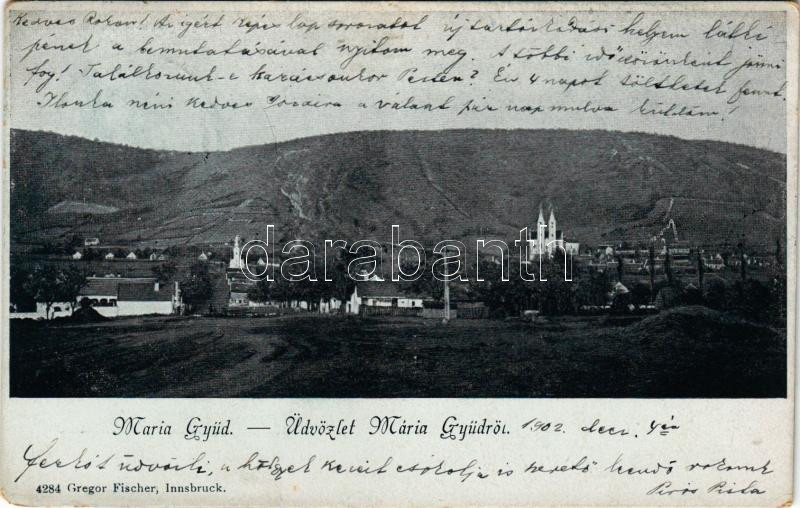 Kedves Rokon! Az igért képes lap sorozatot új tartózkodási helyem látképének a bemutatásával nyitom meg. A többi időközönként jönni
fog! Találkozunk-e karácsonkor Pesten? Én 4 napot töltletek fent.
Ilonka néni kedves soraira a választ pár nap mulva küldöm!
darabanth.com
Maria Gyüd. — Üdvözlet Mária Gyüdröl. 1902. decz. 4én
Ferkót üdvözli, a hölgyek kezeit csókolja is szerető rokona
4284 Gregor Fischer, Innsbruck.
Pirós Pista